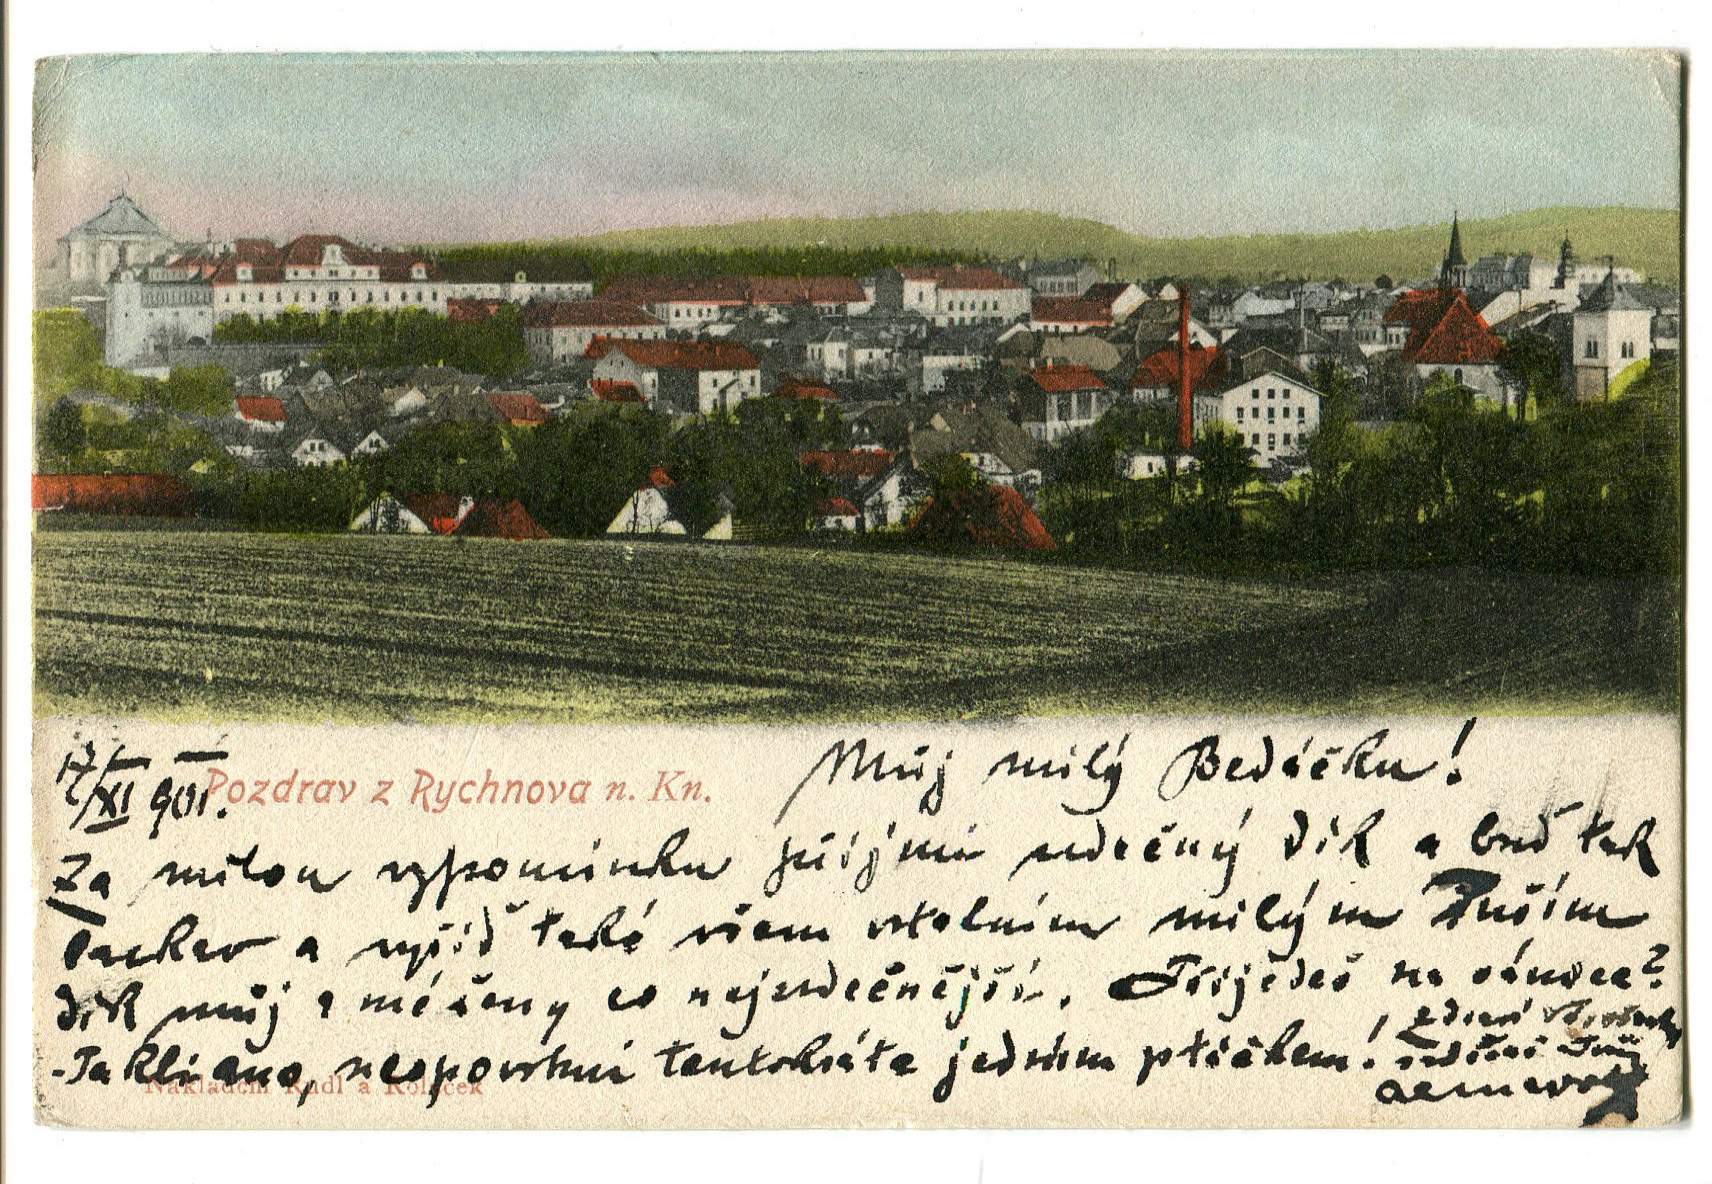 17/XI 901.
Pozdrav z Rychnova n. Kn.
Můj milý Bedáčku!
Za milou vzpomínku přijmi srdečný dík a buď tak
laskav a vyřiď také všem ostatním milým
dík můj a mé ženy co nejsrdečnější. Přijedeš na vánoce?
-Ta kli ano, neopovrhni tentokráte jedním ptáčkem!
Nákladem Rudl a Koláček